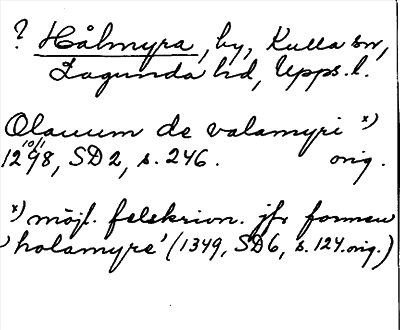 ? Hålmyra, by, Kulla sn,
Lagunda hd, Upps.l.
Olauum de valamyri x)
10/1
1298, SD2, s. 246. orig.
x) möjl. felskrivn. jfr formen
'holamyre' (1349, SD6, s. 124. orig.)